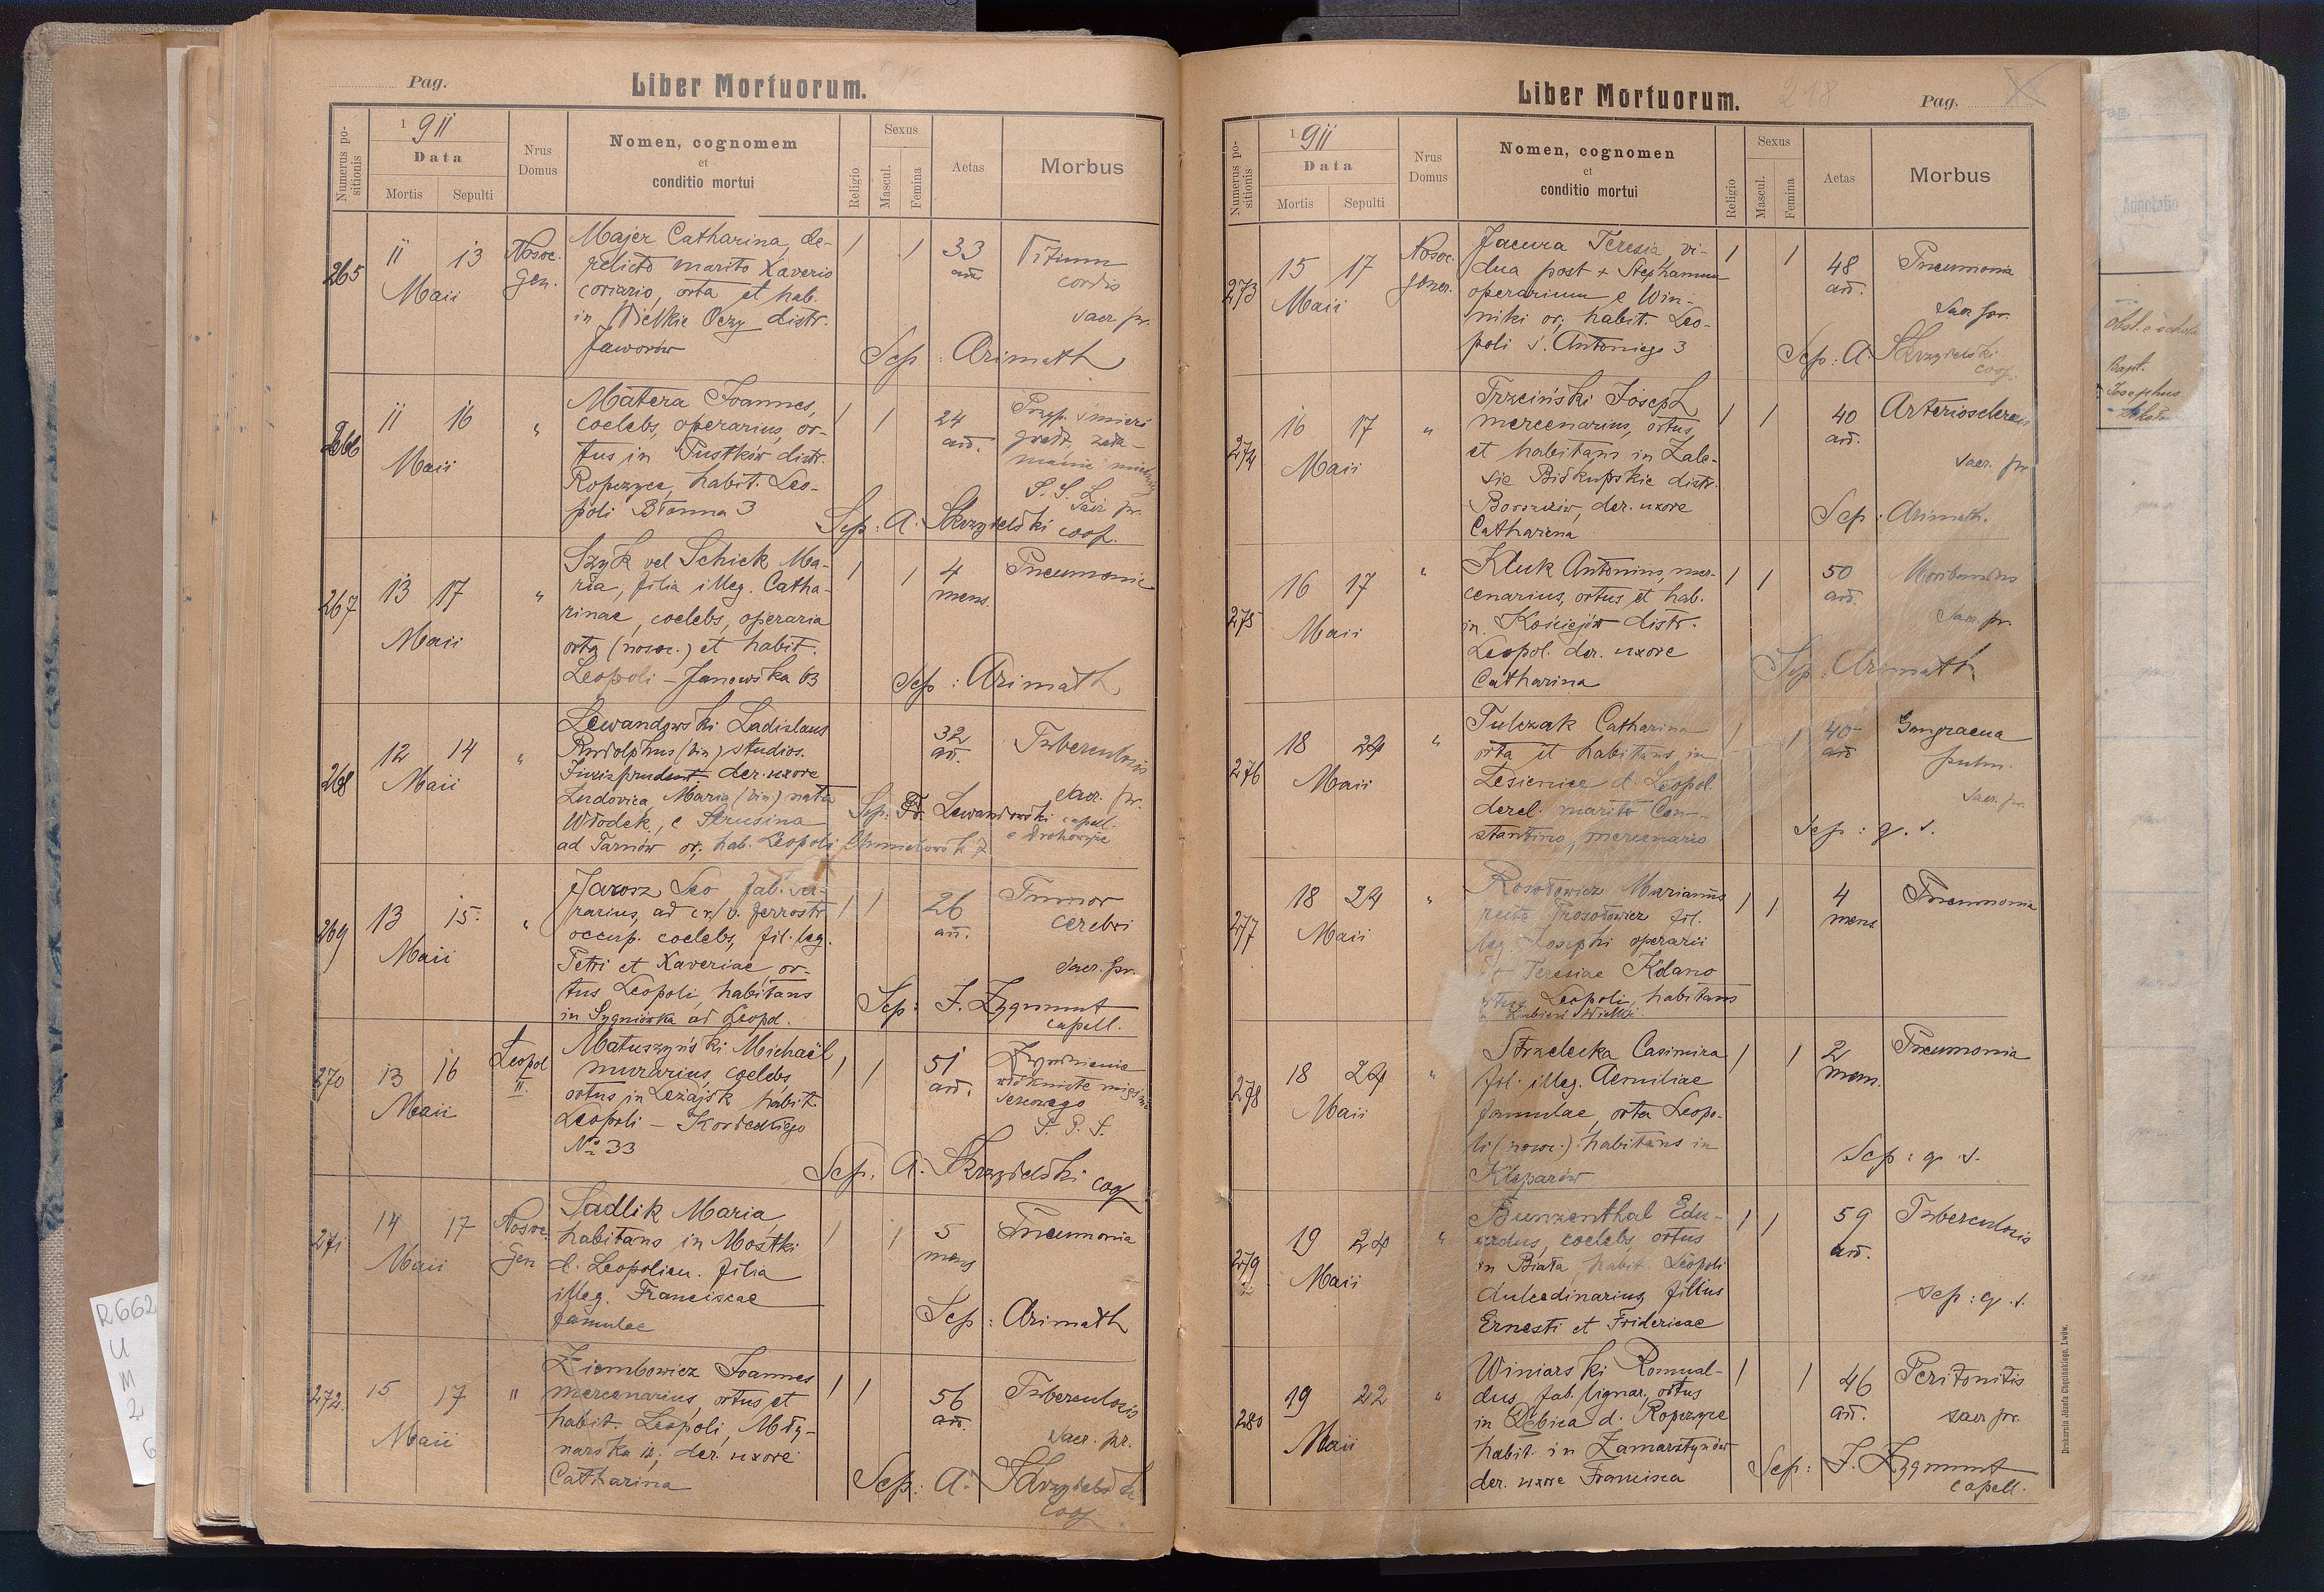 Pag.
Liber Mortuorum.
Numerus positionis
1911
Data
Mortis
Sepulti
Nrus Domus
Nomen, cognomem
et
conditio mortui
Religio
Sexus
Mascul.
Femina
Aetas
Morbus
265
11 13
Maii
Nosoc. gen.
Majer Catharina, de-
relicto marito Xaverio
coriario, orta et hab.
in Wielkie Oczy distr.
Jaworów
1 1
33 an̄.
Vitium
cordis
Sacr. pr.
Sep: Arimath
266
11 16
Maii
"
Matera Joannes,
coelebs, operarius, or-
tus in Pustków distr.
Ropczyce, habit. Leo-
poli Błonna 3
1 1
24 an̄.
S. S. L.
Sacr. pr.
Sep: A. Skrzydelski coop.
267
13 17
Maii
"
Szyk vel Schick Ma-
ria, filia illeg. Catha-
rinae, coelebs, operaria
orta (nosoc.) et habit.
Leopoli – Janowska 63
1 1
4 mens.
Pneumonia
Sep: Arimath
268
12 14
Maii
"
Lewandowski Ladislaus
Rudolphus (bin) studios.
Jurisprudent. der. uxore
Ludovica Maria (bin) nata
Włodek, e Strusina
ad Tarnów or; hab. Leopoli
32 an̄.
Tuberculosis
Sacr. pr.
Sep: Fr. Lewandowski capel.
269
13 15
Maii
"
Jarosz Leo fab. ser-
rarius, ad c. r. v. ferrostr.
occup. coelebs, fil. leg.
Petri et Xaveriae, or-
tus Leopoli, habitans
in Sygniówka ad Leopol.
1 1
26 an̄.
Tumor
cerebri
Sacr. pr.
Sep: J. Zygmunt
capell.
270
13 16
Maii
Leopol II.
Matuszyński Michaël
murarius, coelebs,
ortus in Leżajsk habit.
Leopoli – Kordeckiego
No 33
1 1
51 an̄.
Zwyrodnienie
włókniste mięśnia
sercowego
Sep: A. Skrzydelski coop
271
14 17
Maii
Nosoc. Gen
Sadlik Maria,
habitans in Mostki
d. Leopolien. filia
illeg. Franciscae
famulae
1 1
5 mens
Pneumonia
Sep: Arimath
272.
15 17
Maii
"
Ziembowicz Joannes
mercenarius, ortus et
habit. Leopoli, Mły-
narska 12; der. uxore
Catharina
1 1
56 an̄.
Tuberculosis
Sacr. pr.
Sep: A. Skrzydelski
coop
Liber Mortuorum.
218
Pag.
Numerus positionis
1911
Data
Mortis
Sepulti
Nrus Domus
Nomen, cognomen
et
conditio mortui
Religio
Sexus
Mascul.
Femina
Aetas
Morbus
273
15 17
Maii
Nosoc. gener.
Jacura Teresia, vi-
dua post + Stephanum
operarium e Win-
niki or; habit. Leo-
poli ś. Antoniego 3
1 1
48 an̄.
Pneumonia
Sacr pr.
Sep: A. Skrzydelski
coop.
274
16 17
Maii
"
Trzciński Joseph
mercenarius, ortus
et habitans in Zale-
sie Biskupskie distr.
Borszczów, der. uxore
Catharina
1 1
40 an̄.
Arteriosclerosis
Sacr. pr
Sep: Arimath.
275
16 17
Maii
"
Kluk Antonius, mer-
cenarius, ortus et hab.
in Kościejów distr.
Leopol. der. uxore
Catharina
1 1
50 an̄.
Moribundus
Sacr. pr.
Sep: Arimath
276
18 24
Maii
"
Tulczak Catharina
orta et habitans in
Lesienice d. Leopol.
derel. marito Con-
stantino, mercenario
1 1
40 an̄
Gangraena
pulm.
Sacr. pr.
Sep: q. s.
277
18 24
Maii
"
Rosołowicz Marianus
recte Prosołowicz fil.
leg. Josephi operarii
et Teresiae Kdano
ortus Leopoli, habitans
1 1
4 mens
Pneumonia
278
18 24
Maii
"
Strzelecka Casimira
fil. illeg. Aemiliae
famulae, orta Leopo-
li (nosoc.) habitans in
Kleparów
1 1
2 mens.
Pneumonia
Sep: q. s.
279
19 24
Maii
"
Bunzenthal Edu-
ardus, coelebs, ortus
in Biała, habit. Leopoli
dulcedinarius, filius
Ernesti et Fridericae
1 1
59 an̄.
Tuberculosis
Sep: q. s.
280
19 22
Maii
"
Winiarski Romual-
dus, fab. lignar, ortus
in Dębica d. Ropczyce
habit. in Zamarstynów
der. uxore Francisca
1 1
46 an̄.
Peritonitis
Sacr pr.
Sep: J. Zygmunt
capell.
Drukarnia Józefa Chęcińskiego, Lwów.
Annotatio
Josephus
R662
U
M
2